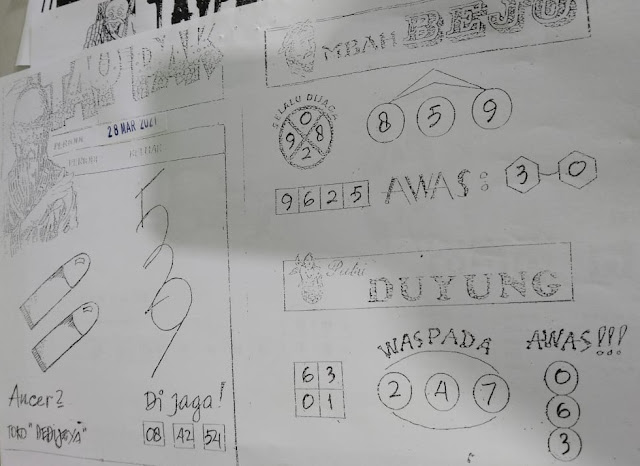 28 MAR 2021
5
3
9
Ancer2
Di jaga!
TOKO
08 42 54
MBAH BEJO
SELALU DIJAGA
0
9 8
2
8 5 9
9 6 2 5
AWAS : 3 - 0
Putri
DUYUNG
6 3
0 1
WASPADA
2 4 7
AWAS!!!
0
6
3